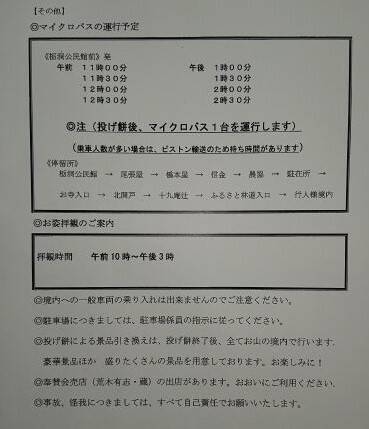 【その他】
◎マイクロバスの運行予定
《栃洞公民館前》発
午前 11時00分 午後 1時00分
11時30分 1時30分
12時00分 2時00分
12時30分 2時30分
◎注（投げ餅後、マイクロバス1台を運行します）
（乗車人数が多い場合は、ピストン輸送のため待ち時間があります）
《停留所》
栃洞公民館 → 尾張屋 → 橋本屋 → 信金 → 農協 → 駐在所 →
お寺入口 → 北開戸 → 十九庵辻 → ふるさと林道入口 → 行人様境内
◎お姿拝観のご案内
拝観時間 午前10時～午後3時
◎境内への一般車両の乗り入れは出来ませんのでご注意ください。
◎駐車場につきましては、駐車場係員の指示に従ってください。
◎投げ餅による景品引き換えは、投げ餅終了後、全てお山の境内で行います.
豪華景品ほか 盛りたくさんの景品を用意しております。お楽しみに！
◎奉賛会売店（荒木有志・蔵）の出店があります。おおいにご利用ください.
◎事故、怪我につきましては、すべて自己責任でお願いいたします。